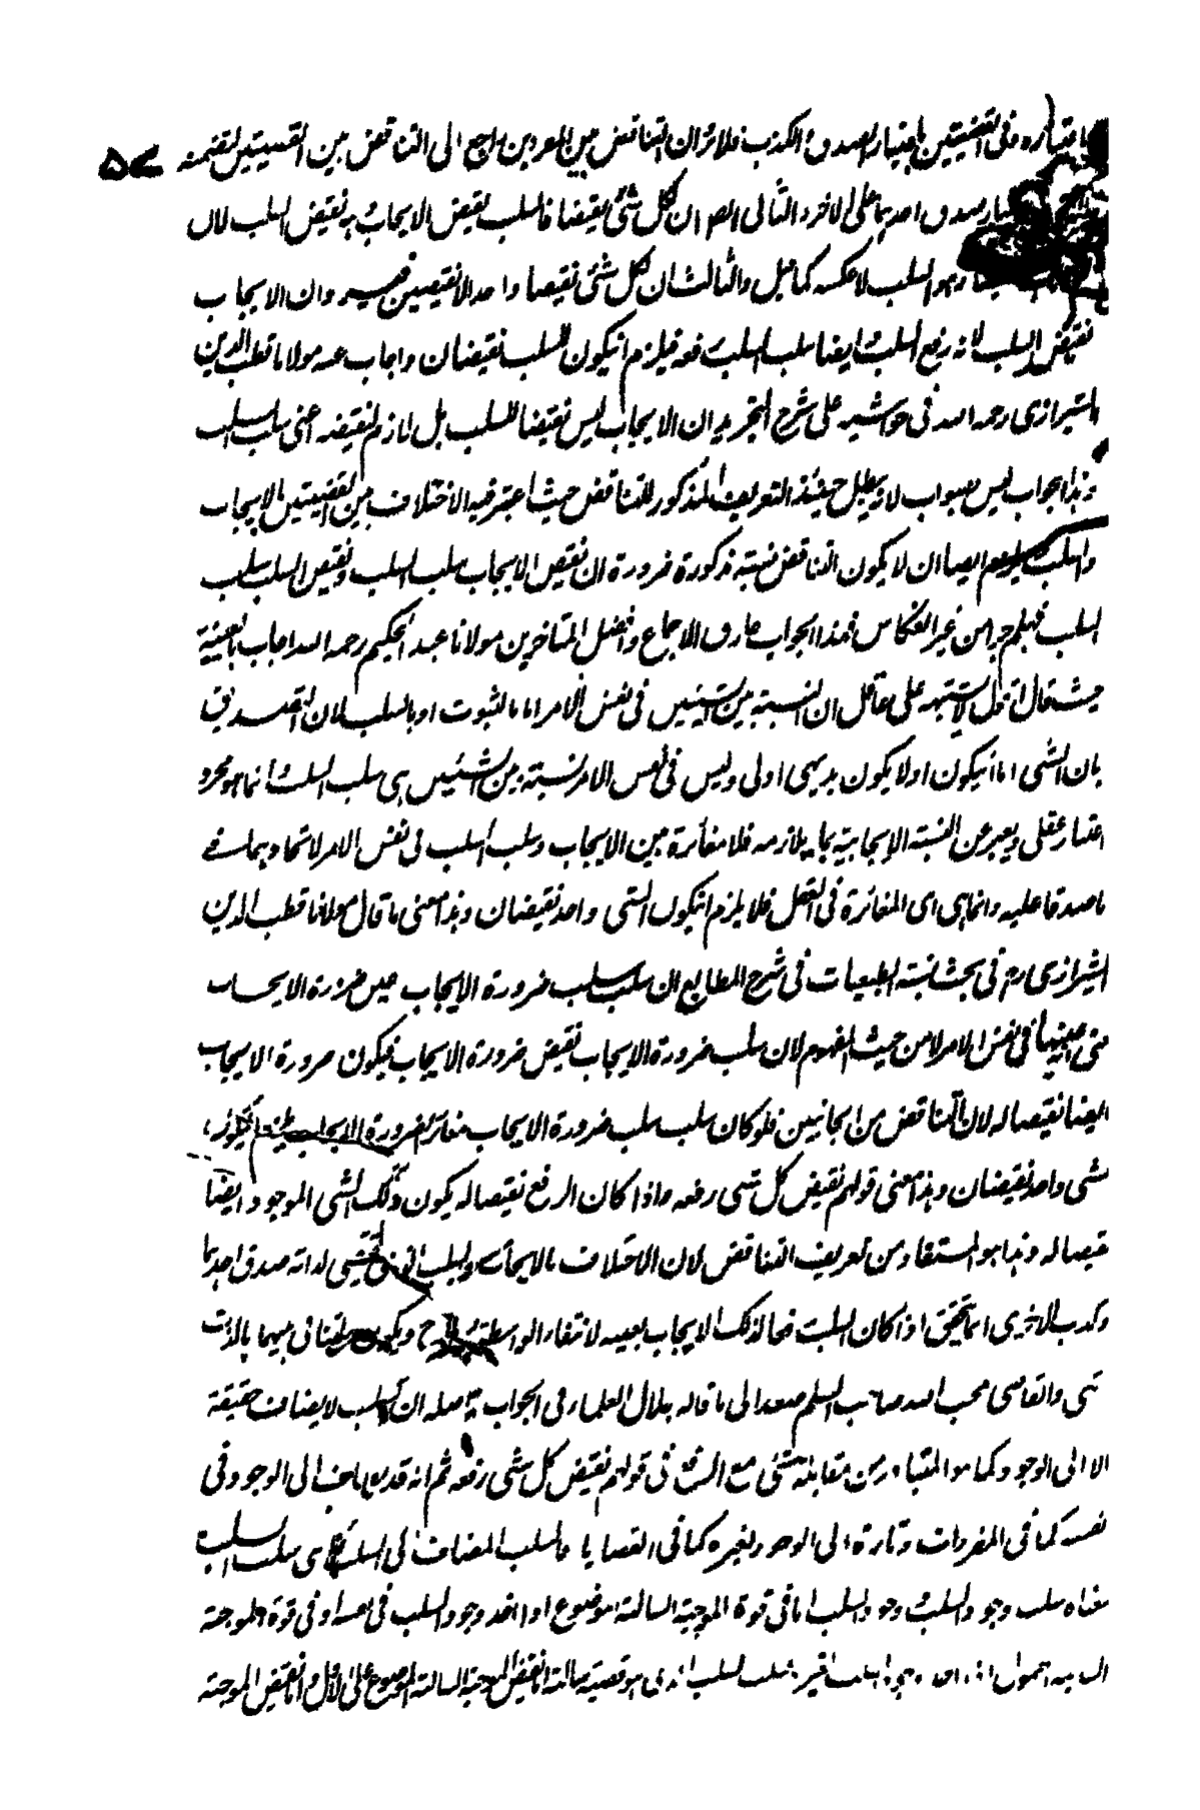 باعتباره وفي القضيتين باعتبار الصدق والكذب فلا ان التناقض بين المفردين راجع الى التناقض بين القضيتين ۵۷
صدق احديهما على الاخر والثاني ان لكل شئ نقيضا فالسلب نقيض الايجاب نقيض السلب لان
السلب لا عكسه كما قيل والثالث ان لكل شئ نقيضا واحدا لا نقيضين وان الايجاب
نقيض السلب لانه رفع السلب وايضا سلب السلب رفعه فيلزم ان يكون للسلب نقيضان واجاب عنه مولانا قطب الدين
الشيرازي رحمه الله في حواشيه على شرح التجريد ان الايجاب ليس نقيضا للسلب بل لازم لنقيضه اعنى سلب السلب
وهذا الجواب ليس بصواب لانه يبطل حينئذ التعريف المذكور للتناقض حيث اعتبر فيه الاختلاف بين القضيتين بالايجاب
والسلب ايضا ان لا يكون التناقض نسبة مذكورة ضرورة ان نقيض الايجاب سلب السلب ونقيض السلب سلب
السلب من غير انعكاس فهذا الجواب خارق للاجماع وافضل المتاخرين مولانا عبد الحكيم رحمه الله اجاب بالعينية
حيث قال اقول لا يشتبه على عاقل ان النسبة بين الشيئين في نفس الامر اما بالثبوت او بالسلب لان التصديق
بان الشئ اما ان يكون اولا يكون بديهى اولى وليس في نفس الامر نسبة بين الشيئين هي سلب السلب انما هو مجرد
اعتبار عقلى ويعبر عن النسبة الايجابية بما يلازمه فلا مغائرة بين الايجاب وسلب السلب في نفس الامر لاتحادهما في
ما صدقا عليه وانما هي اى المغائرة في العقل فلا يلزم ان يكون لشئ واحد نقيضان وهذا معنى ما قال مولانا قطب الدين
الشيرازي رح في بحث نسبة الطبيعيات في شرح المطالع ان سلب سلب ضرورة الايجاب عين ضرورة الايجاب
في نفس الامر لا من حيث المفهوم لان سلب ضرورة الايجاب نقيض ضرورة الايجاب فيكون ضرورة الايجاب
ايضا نقيضا له لان التناقض من الجانبين فلو كان سلب سلب ضرورة الايجاب مغائرا لضرورة الايجاب يلزم ان يكون
لشئ واحد نقيضان وهذا معنى قولهم نقيض كل شئ رفعه واذا كان الرفع نقيضا له يكون ذلك الشئ الموجود ايضا
نقيضا له وهذا هو المستفاد من تعريف التناقض لان الاختلاف بالايجاب والسلب يقتضى لذاته صدق احديهما
وكذب الاخرى انما يتحقق اذا كان السلب رفعا لذلك الايجاب بعينه لانتفاء الواسطة ح ويكون التنافى بينهما بالذات
انتهى والقاضى محب الله صاحب السلم صعد الى ما قاله جلال العلماء في الجواب حاصله ان السلب لا يضاف حقيقة
الا الى الوجود كما هو المتبادر من مقابلة الشئ مع الرفع في قولهم نقيض كل شئ رفعه ثم انه قد يضاف الى الوجود في
نفسه كما في المفردات وتارة الى الوجود لغيره كما في القضايا فالسلب المضاف الى السلب اى سلب السلب
معناه سلب وجود السلب ووجود السلب اما في قوة الموجبة السالبة الموضوع اذا اخذ وجود السلب في نفسه او في قوة الموجبة
السالبة المحمول فسلب السلب الذي هو قضية سالبة اما نقيض الموجبة السالبة الموضوع على الاول واما نقيض الموجبة